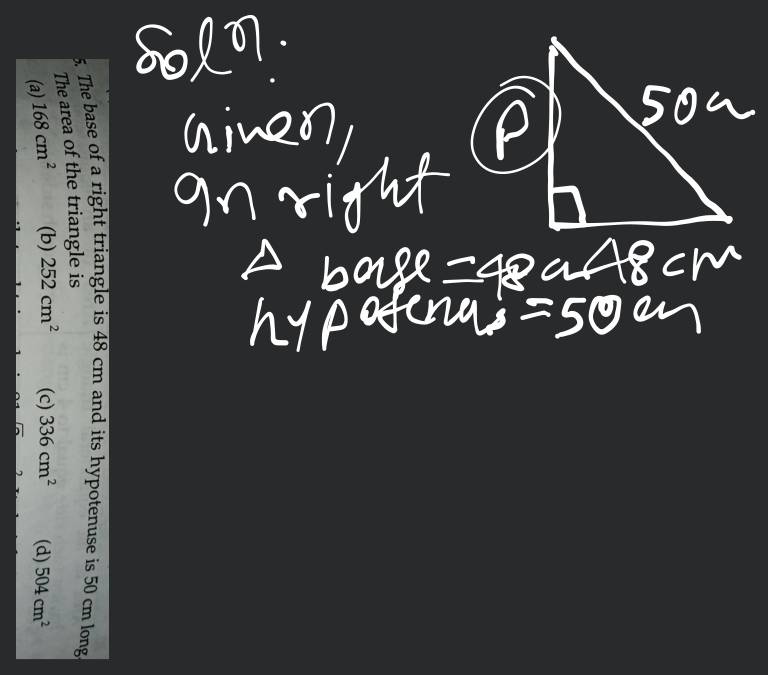 5. The base of a right triangle is 48 cm and its hypotenuse is 50 cm long.
The area of the triangle is
(a) 168 cm² (b) 252 cm² (c) 336 cm² (d) 504 cm²
Soln:
Given,
In right
Δ base = 48 cm
hypotenus = 50 cm
P
50 cm
48 cm